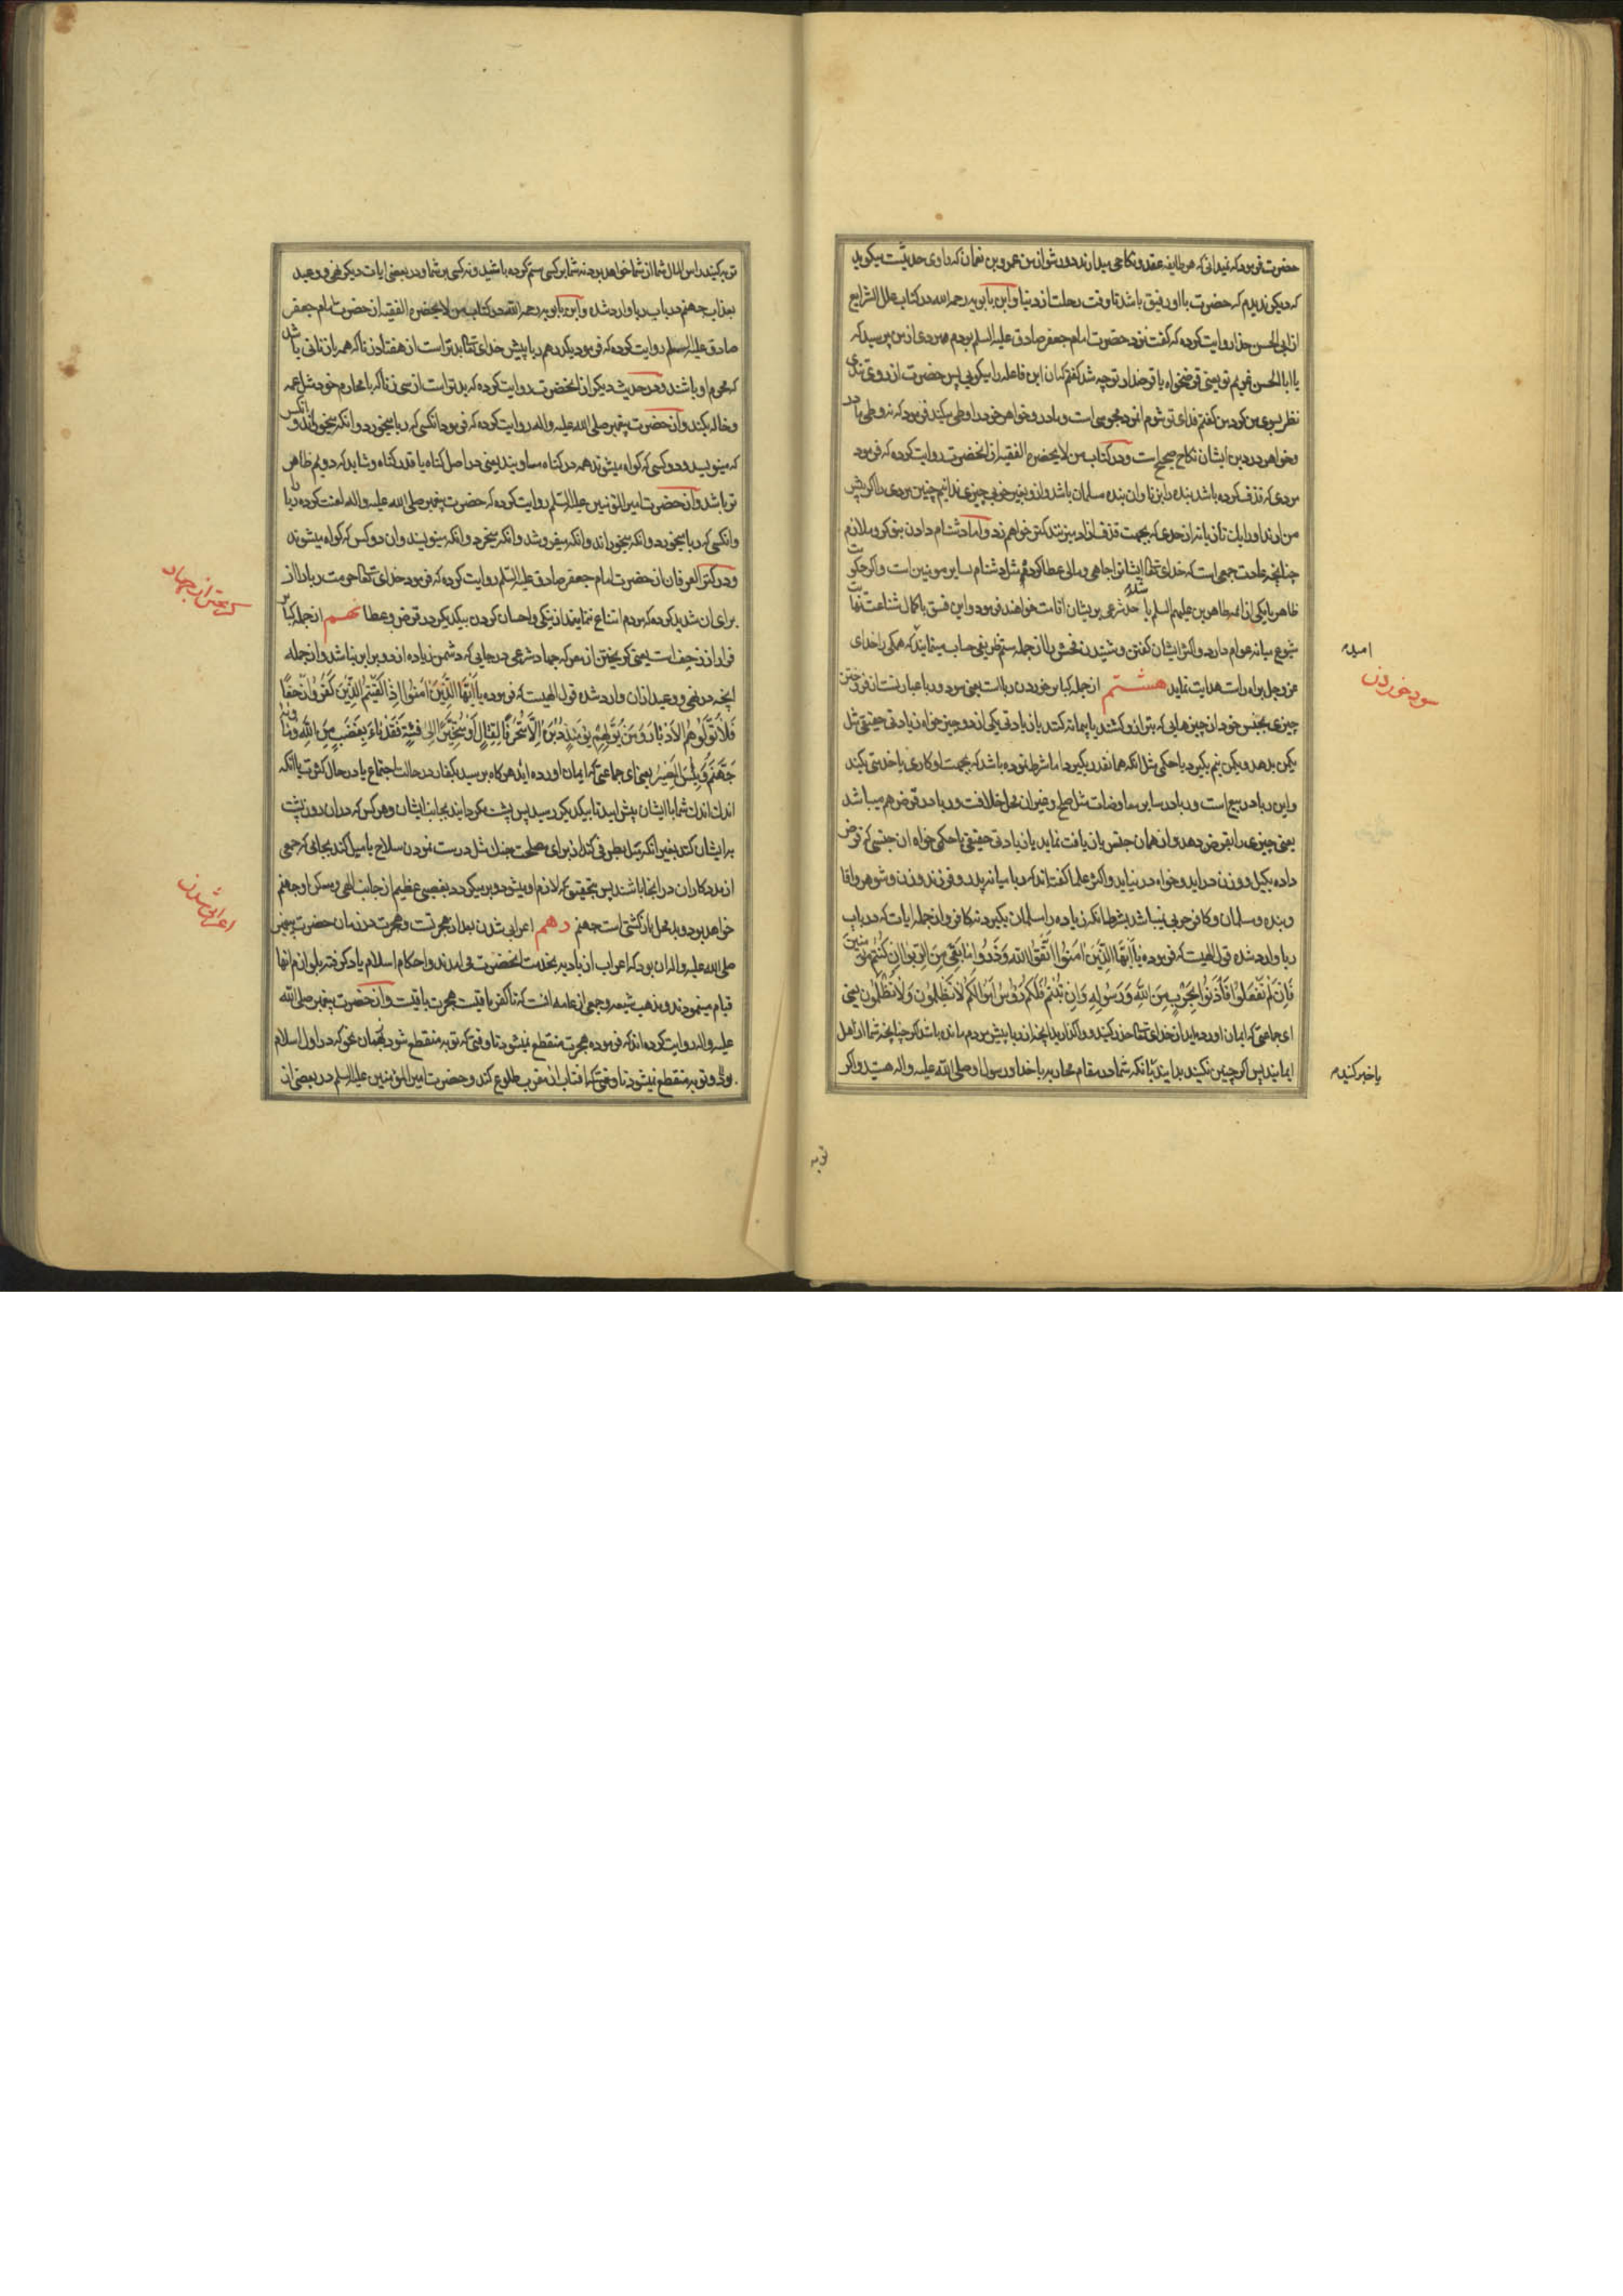 حضرت فرمود که نمیدانی که هر طایفه عقد و نکاحی میدارند دور شو از من عمرو بن نعمان که راوی حدیثست میکوید
که دیکر ندیدم که حضرت با او رفیق باشد تا وقت رحلت از دنیا و ابن بابویه رحمه الله در کتاب علل الشرایع
از ابی الحسن حذا روایت کرده که گفت نزد حضرت امام جعفر صادق علیه السلم بودم مردی از من پرسید که
یا ابا الحسن غریم تو یعنی قرضخواه یا قرضدار تو چه شد کفتم که ان ابن فاعله را میکویی پس حضرت از روی تندی
نظر بسوی من کرد من کفتم فدای تو شوم او مجوسی است و مادر و خواهر خود را وطی میکند فرمود که نه وطی مادر
و خواهر در دین ایشان نکاح صحیح است و در کتاب من لا یحضره الفقیه از انحضرت روایت کرده که فرمود
مردی که قذف کرده باشد بنده را بزنا و ان بنده مسلمان باشد و از و بغیر خوبی چیزی ندانیم چنین مردی را اکر پیش
من ارند او را یک تازیانه از حدی که بجهت قذف ازاد میزنند کمتر خواهم زد و اما دشنام دادن بنوکر و ملازم
چنانچه عادت جمعی است که خدای تعالی ایشانرا جاهی و مالی عطا کرده مثل دشنام بسایر مومنین است و اکر حکومت
ظاهر با یکی از ائمه طاهرین علیهم السلم باشد حد شرعی بر یشان اقامت خواهند فرمود و این فسق با کمال شناعت نهایت
شیوع میانه عوام دارد و اکثر ایشان کفتن و شنیدن فحش را از جمله ستم ظریفی حساب مینمایند که همکی را خدای
عز و جل براه راست هدایت نماید هشتم از جمله کبایر خوردن ربا است یعنی سود و ربا عبارتست از فروختن
چیزی بجنس خود از چیزهایی که بترازو کشند یا پیمانه کنند با زیادتی یکی از دو چیز خواه زیادتی حقیقی مثل
یکمن بدهد و یکمن نیم بکیرد یا حکمی مثل انکه همانقدر بکیرد اما شرط نموده باشد که بجهت او کاری یا خدمتی بکند
و این ربا در بیع است و ربا در سایر معاوضات مثل صلح و غیر ان محل خلافست و ربا در قرض هم میباشد
یعنی چیزی را بقرض دهد و از همان جنس بازیافت نماید با زیادتی حقیقی یا حکمی خواه ان جنسی که قرض
داده بکیل و وزن در اید و خواه در نیاید و اکثر علما کفته‌اند که ربا میانه پدر و فرزند و زن و شوهر و اقا
و بنده و مسلمان و کافر حربی نمیباشد بشرط انکه زیاده را مسلمان بکیرد نه کافر و از جمله ایات که در باب
ربا وارد شده قول الهیست که فرموده یا أیها الذین امنوا اتقوا الله وذروا ما بقی من الربوا ان کنتم مؤمنین
فإن لم تفعلوا فأذنوا بحرب من الله ورسوله وإن تبتم فلکم رؤس أموالکم لا تظلمون ولا تظلمون یعنی
ای جماعتی که ایمان اورده‌اید از خدای تعالی حذر کنید و واکذارید انچه از ربا پیش مردم مانده باشد اکر چنانچه شما از اهل
ایمانید پس اکر چنین نکنید بدانید بانکه شما در مقام محاربه با خدا و رسول او صلی الله علیه و اله هستید و اکر
امیده
سود خوردن
یا خبر کنید
توبه
توبه کنید راس المال شما از شما خواهد بود نه شما بر کسی ستم کرده باشید و نه کسی بر شما و در بعضی ایات دیکر نهی و وعید
بعذاب جهنم در باب ربا وارد شده و ابن بابویه رحمه الله در کتاب من لا یحضره الفقیه از حضرت امام جعفر
صادق علیه السلم روایت کرده که فرمود یکدرهم ربا پیش خدای تعالی بدتر است از هفتاد زنا که همه با زنانی باشد
که محرم او باشند و در حدیث دیکر از انحضرت روایت کرده که بدتر است از سی زنا که با محارم خود مثل عمه
و خاله بکند و از حضرت پیغمبر صلی الله علیه و اله روایت کرده که فرمود انکسی که ربا میخورد و انکه میخوراند و انکس
که مینویسد و دو کسی که کواه میشوند همه در کناه مساویند یعنی در اصل کناه یا قدر کناه و شاید که دویم ظاهر
تر باشد و از حضرت امیر المؤمنین علیه السلم روایت کرده که حضرت پیغمبر صلی الله علیه و اله لعنت کرده ربا را
و انکسی که ربا میخورد و انکه میخوراند و انکه میفروشد و انکه میخرد و انکه مینویسد و ان دو کس که کواه میشوند
و در کنز العرفان از حضرت امام جعفر صادق علیه السلم روایت کرده که فرمود خدای تعالی حرمت ربا را از
برای ان شدید کرده که مردم امتناع ننمایند از نیکی و احسان کردن بیکدیکر در قرض و عطا نهم از جمله کبایر
فرار از زحف است یعنی کریختن از معرکه جهاد شرعی در جایی که دشمن زیاده از دو برابر نباشد و از جمله
انچه در نهی و وعید از ان وارد شده قول الهیست که فرموده یا أیها الذین امنوا إذا لقیتم الذین کفروا زحفا
فلا تولوهم الأدبار ومن یولهم یومئذ دبره إلا متحرفا لقتال أو متحیزا إلی فئة فقد باء بغضب من الله ومأواه
جهنم وبئس المصیر یعنی ای جماعتی که ایمان اورده اید هرکاه برسید بکفار در حالت اجتماع یا در حال کثرت یا انکه
اندک اندک شما با ایشان پیش امید تا بیکدیکر رسید پس پشت مکردانید بجانب ایشان و هرکس که در ان روز پشت
بر ایشان کند بغیر انکه میل بطرفی کند از برای مصلحت جنک مثل درست نمودن سلاح یا میل کند بجائی که جمعی
از مددکاران در انجا باشند پس بتحقیق که لازم او میشود و برمیکردد بغضبی عظیم از جانب الهی و مسکن او جهنم
خواهد بود و بد محل بازکشتی است جهنم دهم اعرابی شدن بعد از هجرتست و هجرت در زمان حضرت پیغمبر
صلی الله علیه و اله ان بود که اعراب از بادیه بخدمت انحضرت می‌امدند و احکام اسلام یاد کرفته بلوازم انها
قیام مینمودند و مذهب شیعه و جمعی از عامه انست که تا کفر باقیست هجرت باقیست و از حضرت پیغمبر صلی الله
علیه و اله روایت کرده‌اند که فرموده هجرت منقطع نمیشود تا وقتی که توبه منقطع شود
بود و توبه منقطع نمیشود تا وقتی که افتاب از مغرب طلوع کند و حضرت امیر المؤمنین علیه السلم در بعضی از
کریختن از جهاد
اعرابی شدن